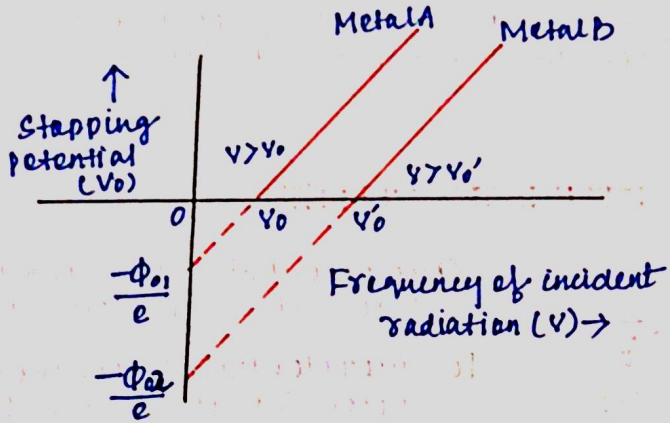 Metal A
Metal B
↑
Stopping
potential
(V₀)
ν>ν₀
ν>ν₀'
O
ν₀
ν₀'
-Φ₀₁/e
Frequency of incident
radiation (ν) →
-Φ₀₂/e